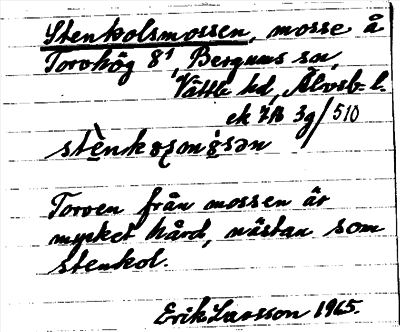 Stenkolsmossen, mosse å
Torvhög 8¹, Bergums sn,
Vättle hd, Älvsb. l.
ek 7B 3g/510
Torven från mossen är
mycket hård, nästan som
stenkol.
Erik Larsson 1965.